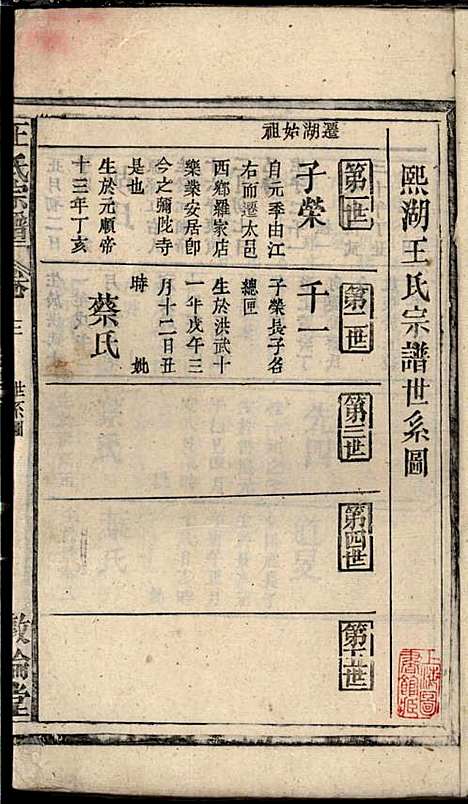 熙湖王氏宗譜世系圖
第一世
遷湖始祖
子榮
自元季由江
右而遷太邑
西鄉羅家店
樂業安居即
今之彌陁寺
生於元順帝
十三年丁亥
第二世
千一
子榮長子各
總匣
生於洪武十
一年戊午三
月十二日丑
時
妣
蔡氏
也
第三世
第四世
第五世
上海圖
書館藏
王氏宗譜
卷
世系圖
敦倫堂